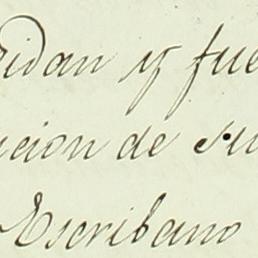 ridan y fue
cion de su
Escribano